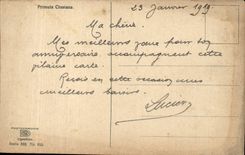 Primula Chretana.
23 Janvier 1919.
Ma chérie.
Mes meilleurs vœux pour ton
anniversaire accompagnent cette
jolie carte.
Reçois en cette occasion mes
meilleurs baisers.
Lucien